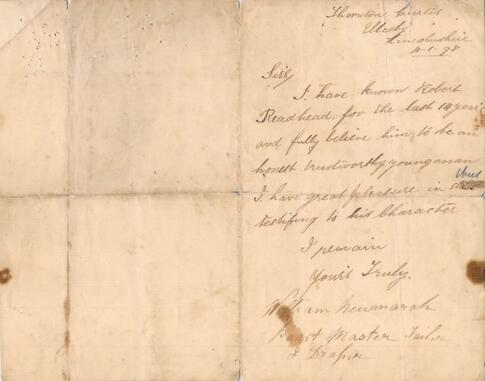 Thornton Curtis
Ulceby
Lincolnshire
4-1-98
Sir,
I have known Robert
Readhead for the last 14 years
and fully believe him to be an
honest trustworthy young man
I have great pleasure in thus
testifing to his Character
I remain
Yours Truly.
William Newmarsh
Master Tailor
& Draper